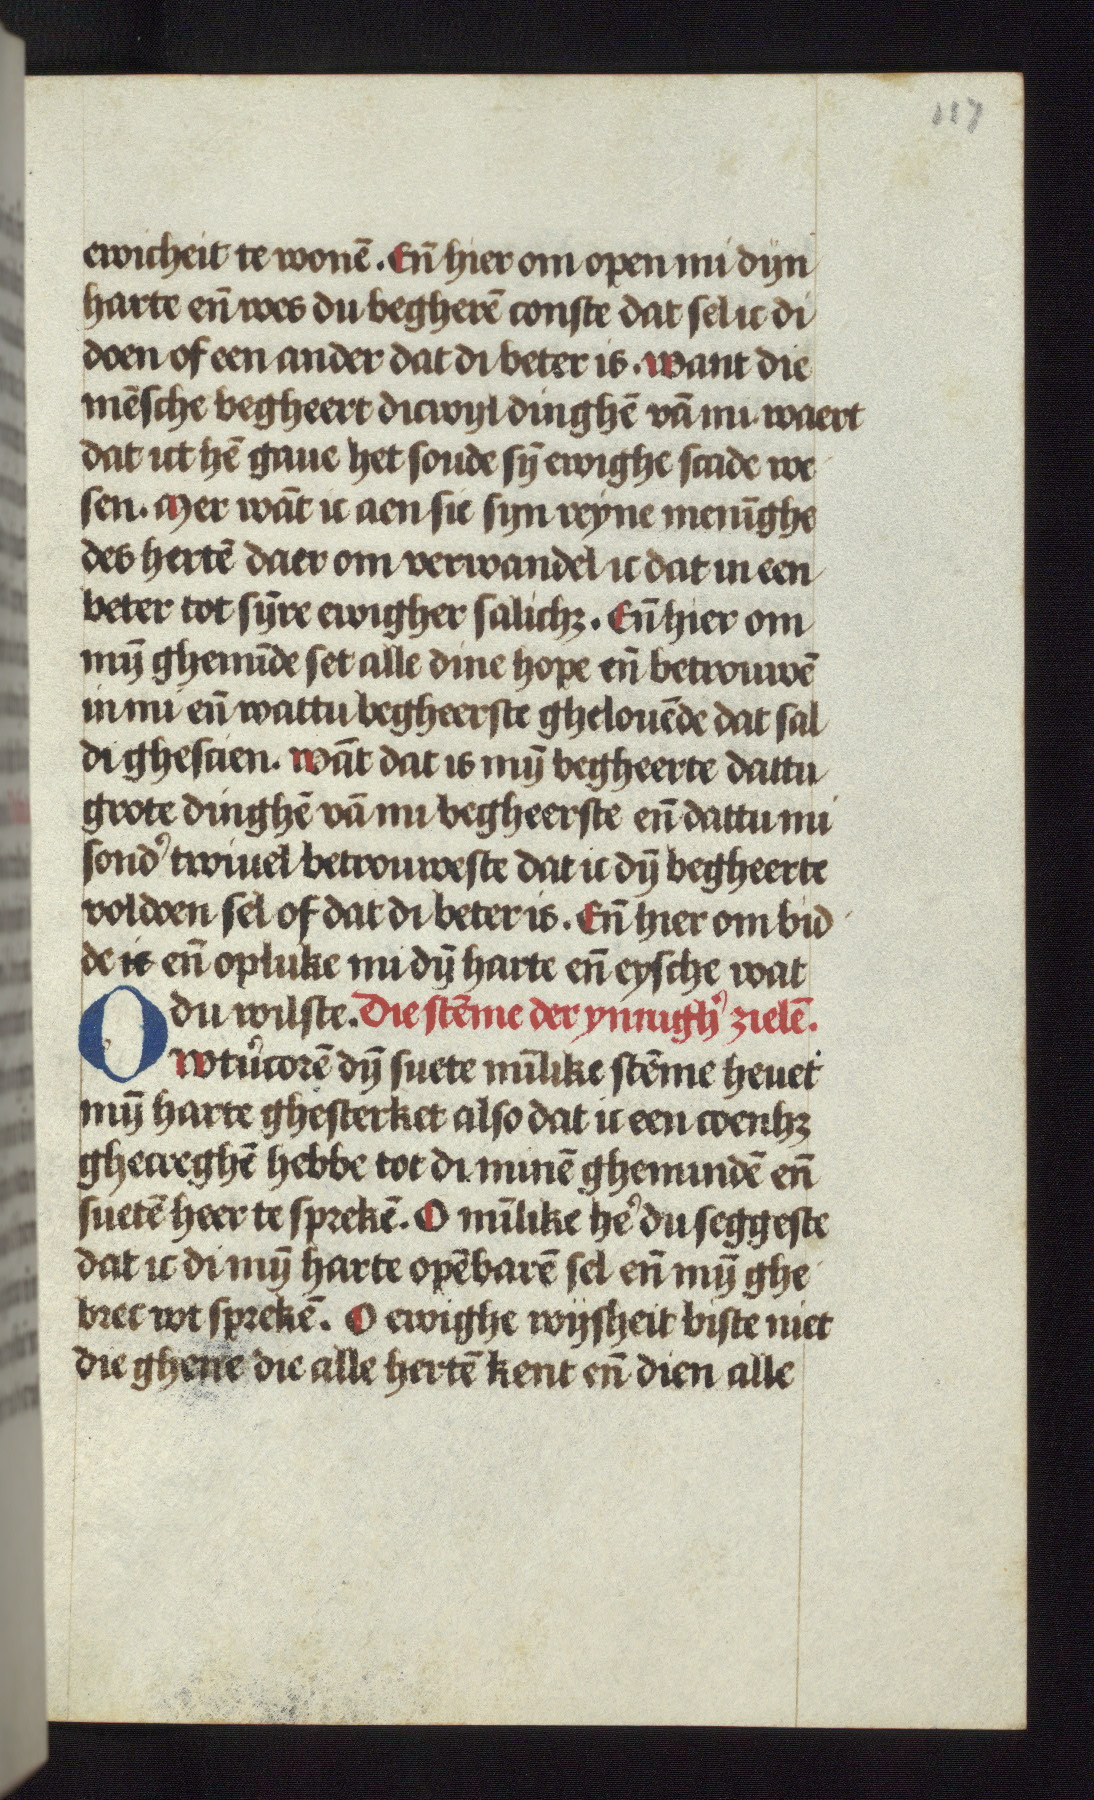 117
ewicheit te wonē. Eñ hier om open mi dijn
harte eñ wes du begherē conste dat sel ic di
doen of een ander dat di beter is. want die
mēsche begheert dicwyl dinghē vā mi waert
dat ict hē gaue het soude sȳ ewighe scade we
sen. Mer wāt ic aen sie sijn reyne menīghe
des hertē daer om verwandel ic dat in een
beter tot sȳre ewigher salichꝫ. Eñ hier om
mȳ ghemīde set alle dine hope eñ betrouwē
in mi eñ wattu begheerste ghelouēde dat sal
di ghescien. wāt dat is mȳ begheerte dattu
grote dinghē vā mi begheerste eñ dattu mi
sond' twiuel betrouweste dat ic dȳ begheerte
voldoen sel of dat di beter is. Eñ hier om bid
de ic eñ opluke mi dȳ harte eñ eysche wat
du wilste. Die stēme der ynnigh' zielē.
O wtu'corē dȳ suete mīlike stēme heuet
mȳ harte ghesterket also dat ic een coenhꝫ
ghecreghē hebbe tot di minē ghemindē eñ
suetē heer te sprekē. O mīlike he' du seggeste
dat ic di mȳ harte opēbarē sel eñ mȳ ghe
brec wt sprekē. O ewighe wijsheit biste niet
die ghene die alle hertē kent eñ dien alle